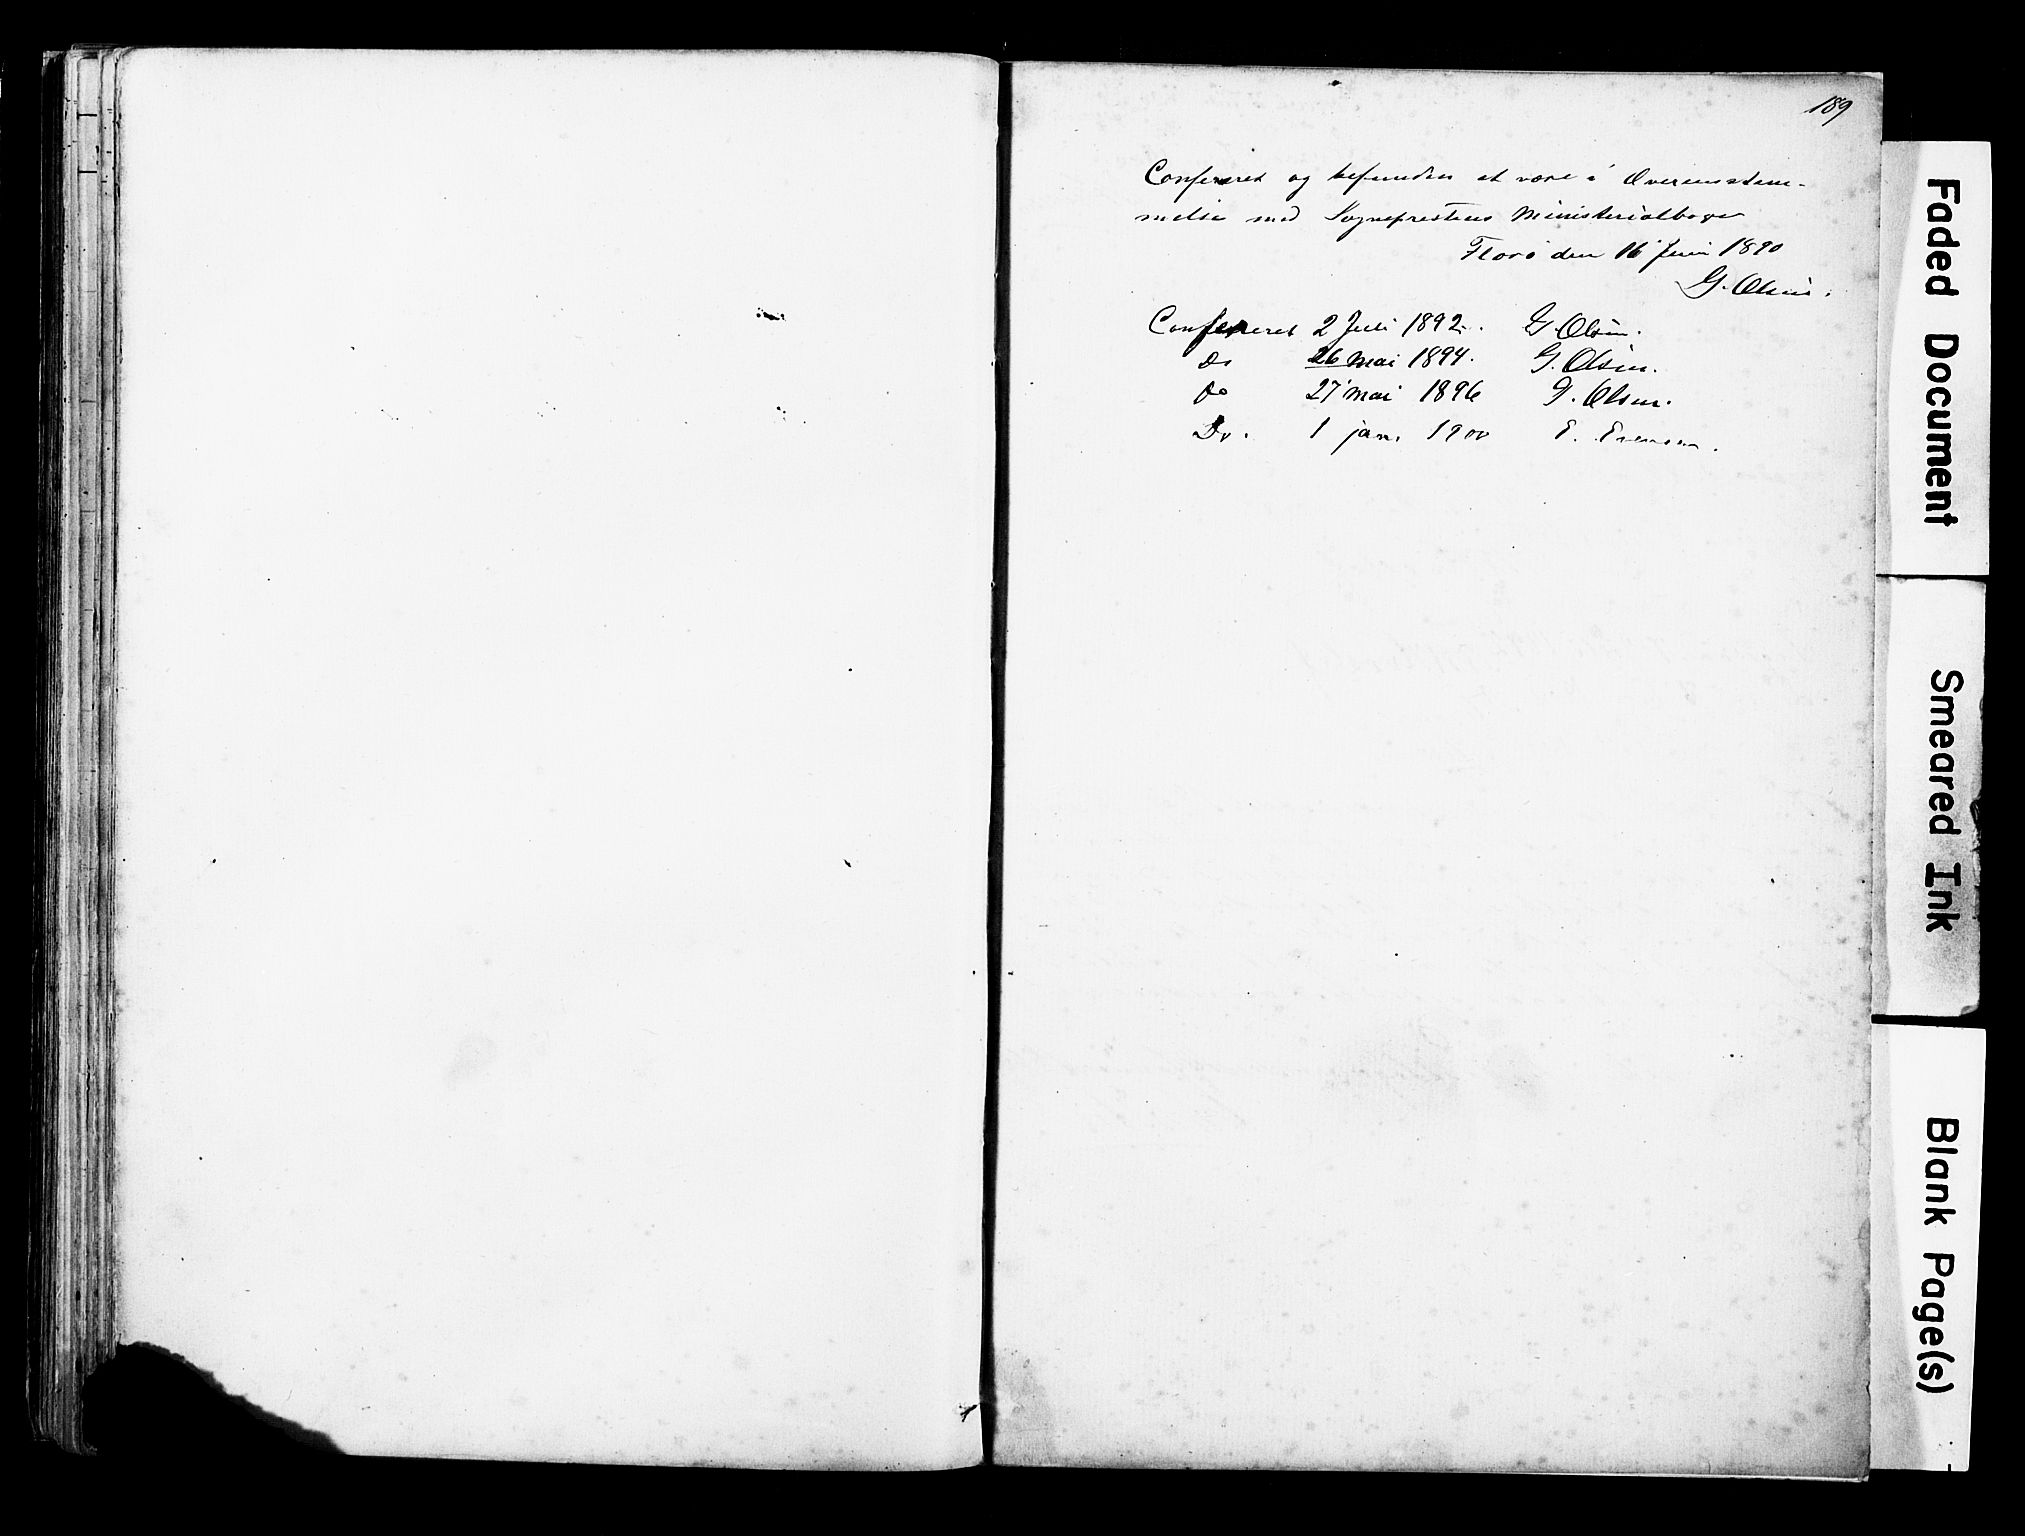 189
Confereret og befunden at være i Overensstem-
melse med Sogneprestens Ministerialboger
Florø den 16 Juni 1890
G. Olsen.
Confereret 2 Juli 1892. G. Olsen.
Do 26 mai 1894. G. Olsen.
Do 27 mai 1896 G. Olsen.
Do. 1 jan. 1900 E. Evensen.
Faded Document
Smeared Ink
Blank Page(s)